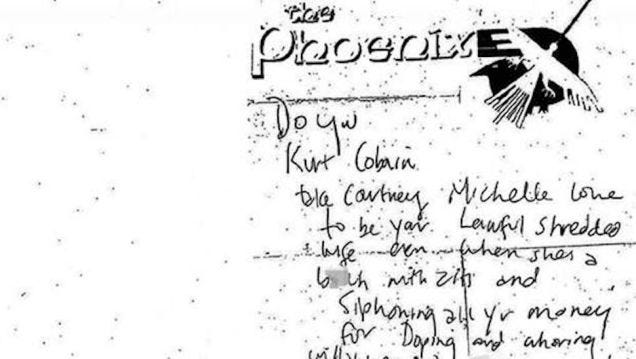 the
Phoenix
Do you
Kurt Cobain
take Courtney Michelle Love
to be your Lawful shredded
wife even when shes a
with zits and
siphoning all yr money
for Doping and whoring